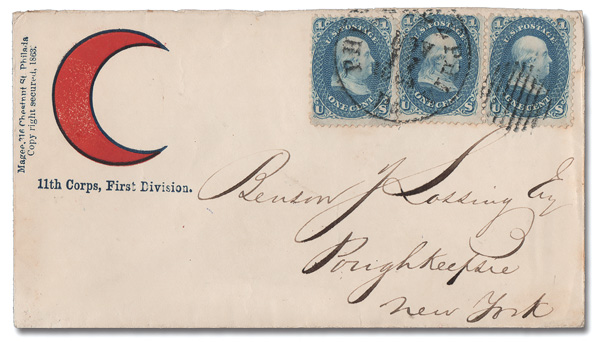 Magee, 316 Chestnut St. Philada
Copy right secured, 1863.
11th Corps, First Division.
U.S. POSTAGE
ONE CENT
U.S. POSTAGE
ONE CENT
U.S. POSTAGE
ONE CENT
Benson J Lossing Esq
Poughkeepsie
New York